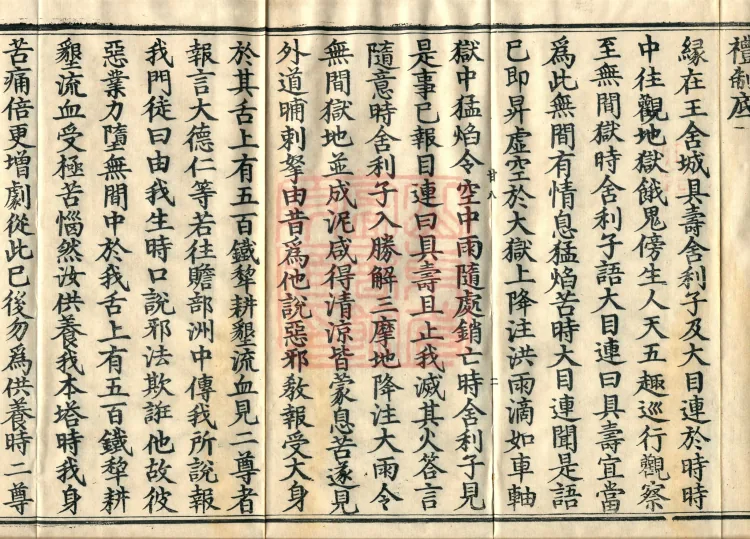 禮制底
縁在王舍城具壽舍利子及大目連於時時
中往觀地獄餓鬼傍生人天五趣巡行觀察
至無間獄時舍利子語大目連曰具壽宜當
爲此無間有情息猛焰苦時大目連聞是語
已即昇虛空於大獄上降注洪雨滴如車軸
甘八
二
獄中猛焰令空中雨隨處銷亡時舍利子見
是事已報目連曰具壽且止我滅其火答言
隨意時舍利子入勝解三摩地降注大雨令
無間獄地並成泥咸得清涼皆蒙息苦遂見
外道晡剌拏由昔爲他說惡邪敎報受大身
於其舌上有五百鐵犂耕墾流血見二尊者
報言大德仁等若往贍部洲中傳我所說報
我門徒曰由我生時口說邪法欺誑他故彼
惡業力墮無間中於我舌上有五百鐵犂耕
墾流血受極苦惱然汝供養我本塔時我身
苦痛倍更增劇從此已後勿爲供養時二尊